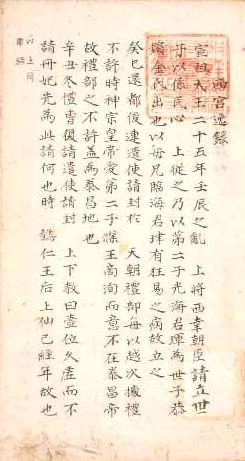 西宮錄
宣祖大王二十五年壬辰之亂 上將西幸朝臣請立世
子以係民心 上從之乃以第二子光海君琿爲世子恭
嬪金氏出也以母兄臨海君珒有狂易之病故立之
癸巳還都後連遣使請封於 天朝禮部每以越次據禮
不許時神宗皇帝愛第二子王洵而意不在泰昌帝
故禮部之不許盖爲泰昌地也
辛丑冬禮曺復請遣使請封 上下敎曰壼位久虛而不
請冊妃先爲此請何也時 懿仁王后上仙已經年故也
以上荷
潭錄